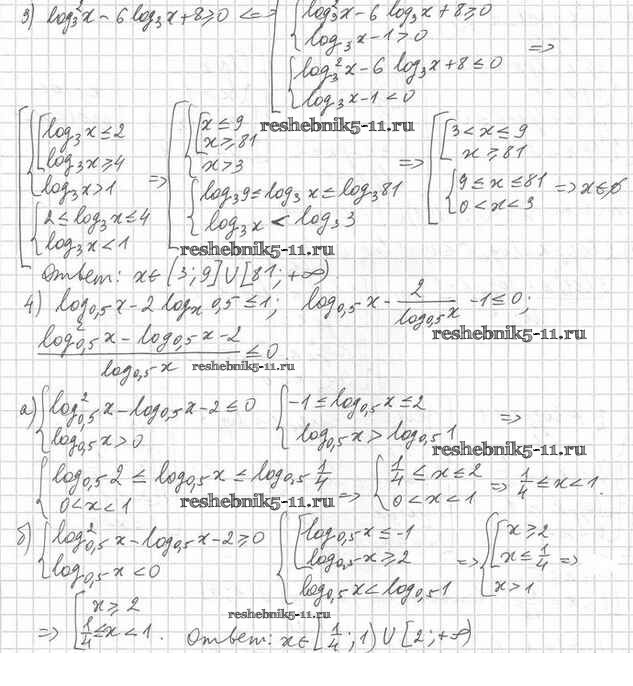 3) log₃²x - 6 log₃x + 8 ≥ 0 <=> [ { log₃²x - 6 log₃x + 8 ≥ 0
log₃x - 1 > 0
{ log₃²x - 6 log₃x + 8 ≤ 0 =>
log₃x - 1 < 0
[ { [ log₃x ≤ 2
log₃x ≥ 4
log₃x > 1
{ 2 ≤ log₃x ≤ 4
log₃x < 1
=> [ { [ x ≤ 9
x ≥ 81
x > 3
{ log₃9 ≤ log₃x ≤ log₃81
log₃x < log₃3
=> [ [ 3 < x ≤ 9
x ≥ 81
{ 9 ≤ x ≤ 81
0 < x < 3 => x ∈ ∅
reshebnik5-11.ru
reshebnik5-11.ru
Ответ: x ∈ (3; 9] ∪ [81; +∞)
4) log₀,₅x - 2 logₓ0,5 ≤ 1; log₀,₅x - 2/log₀,₅x - 1 ≤ 0;
reshebnik5-11.ru
(log²₀,₅x - log₀,₅x - 2)/log₀,₅x ≤ 0
reshebnik5-11.ru
а) { log²₀,₅x - log₀,₅x - 2 ≤ 0 { -1 ≤ log₀,₅x ≤ 2 =>
log₀,₅x > 0 log₀,₅x > log₀,₅1
reshebnik5-11.ru
{ log₀,₅2 ≤ log₀,₅x ≤ log₀,₅1/4 => { 1/4 ≤ x ≤ 2 => 1/4 ≤ x < 1.
0 < x < 1 0 < x < 1
reshebnik5-11.ru
б) { log²₀,₅x - log₀,₅x - 2 ≥ 0
log₀,₅x < 0
{ [ log₀,₅x ≤ -1
log₀,₅x ≥ 2
log₀,₅x < log₀,₅1
=> { [ x ≥ 2
x ≤ 1/4 =>
x > 1
reshebnik5-11.ru
=> [ x ≥ 2
1/4 ≤ x < 1. Ответ: x ∈ [1/4; 1) ∪ [2; +∞)